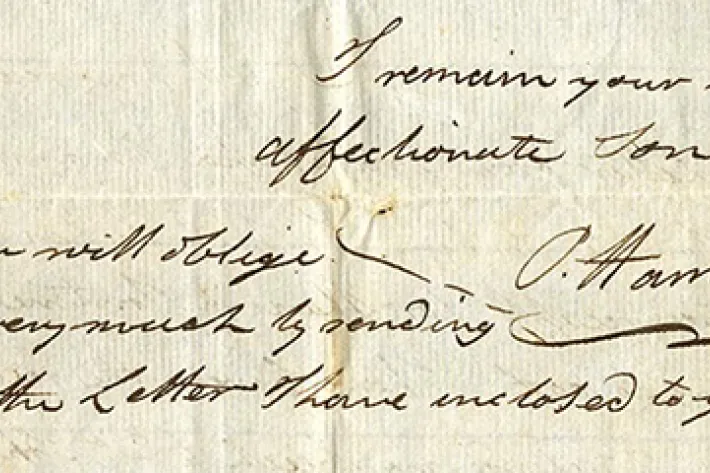 I remain your
affectionate Son
will oblige P. Ham
very much by sending
the Letter I have inclosed to